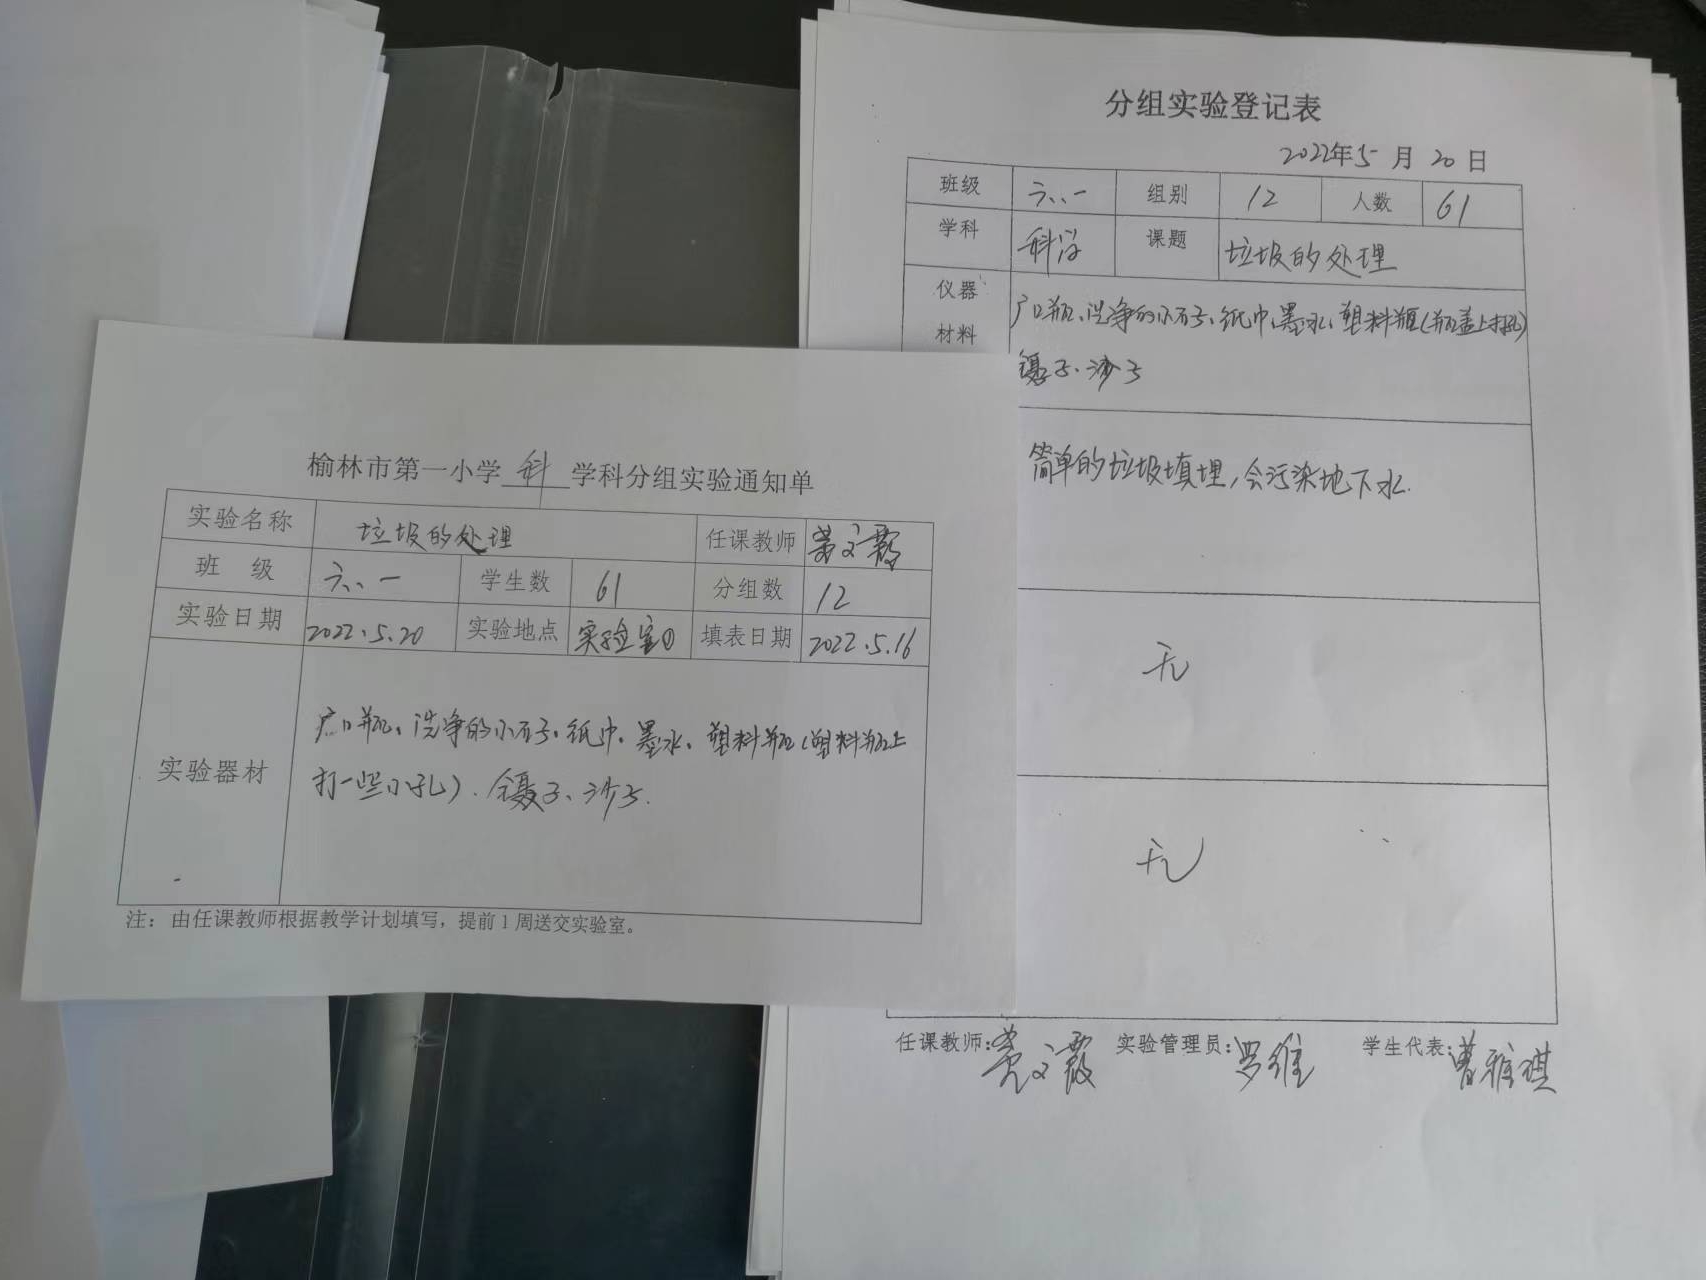 榆林市第一小学 科 学科分组实验通知单
实验名称 垃圾的处理 任课教师 文霞
班 级 六、一 学生数 61 分组数 12
实验日期 2022.5.20 实验地点 实验室① 填表日期 2022.5.16
实验器材 广口瓶、洗净的小石子、纸巾、墨水、塑料瓶(塑料瓶上
打一些小孔)、镊子、沙子.
注：由任课教师根据教学计划填写，提前1周送交实验室。
分组实验登记表
2022年5月20日
班级 六、一 组别 12 人数 61
学科 科学 课题 垃圾的处理
仪器 材料 广口瓶、洗净的小石子、纸巾、墨水、塑料瓶(瓶盖上打孔)
镊子、沙子
简单的垃圾填埋,会污染地下水.
无
无
任课教师: 文霞 实验管理员: 罗维 学生代表: 曹雅琪